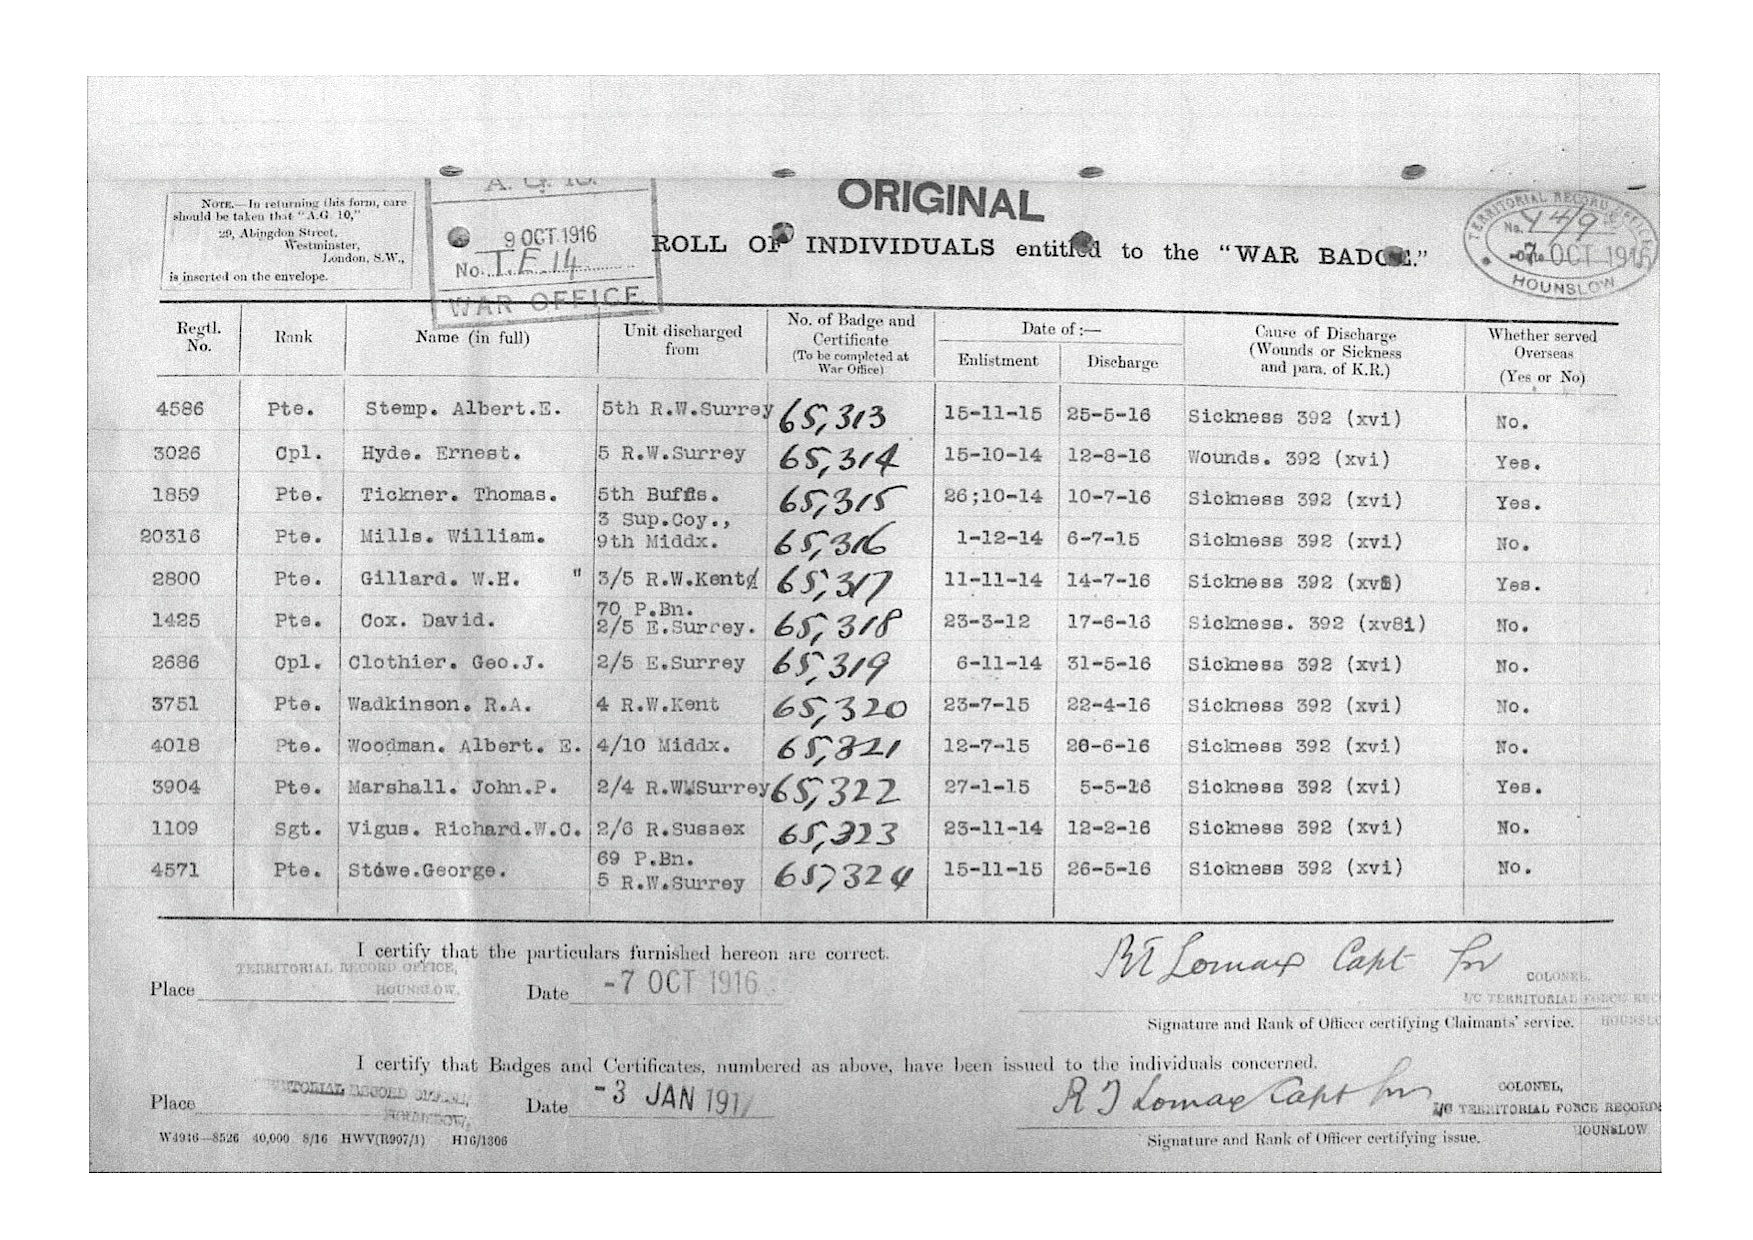 A. G. 10.
ORIGINAL
NOTE.—In returning this form, care
should be taken that "A.G. 10,"
29, Abingdon Street,
Westminster,
London, S.W.,
is inserted on the envelope.
9 OCT 1916
No. T.F. 14
WAR OFFICE
ROLL OF INDIVIDUALS entitled to the "WAR BADGE."
TERRITORIAL RECORD OFFICE
No.
7 OCT 1916
HOUNSLOW
Regtl. No. Rank Name (in full) Unit discharged from No. of Badge and Certificate (To be completed at War Office) Date of:— Enlistment Discharge Cause of Discharge (Wounds or Sickness and para. of K.R.) Whether served Overseas (Yes or No)
4586 Pte. Stemp. Albert.E. 5th R.W.Surrey 65,313 15-11-15 25-5-16 Sickness 392 (xvi) No.
3026 Cpl. Hyde. Ernest. 5 R.W.Surrey 65,314 15-10-14 12-8-16 Wounds. 392 (xvi) Yes.
1859 Pte. Tickner. Thomas. 5th Buffs. 65,315 26;10-14 10-7-16 Sickness 392 (xvi) Yes.
20316 Pte. Mills. William. 3 Sup.Coy., 9th Middx. 65,316 1-12-14 6-7-15 Sickness 392 (xvi) No.
2800 Pte. Gillard. W.H. " 3/5 R.W.Kent 65,317 11-11-14 14-7-16 Sickness 392 (xvi) Yes.
1425 Pte. Cox. David. 70 P.Bn. 2/5 E.Surrey. 65,318 23-3-12 17-6-16 Sickness. 392 (xv8i) No.
2686 Cpl. Clothier. Geo.J. 2/5 E.Surrey 65,319 6-11-14 31-5-16 Sickness 392 (xvi) No.
3751 Pte. Wadkinson. R.A. 4 R.W.Kent 65,320 23-7-15 22-4-16 Sickness 392 (xvi) No.
4018 Pte. Woodman. Albert. E. 4/10 Middx. 65,321 12-7-15 20-6-16 Sickness 392 (xvi) No.
3904 Pte. Marshall. John.P. 2/4 R.W.Surrey 65,322 27-1-15 5-5-16 Sickness 392 (xvi) Yes.
1109 Sgt. Vigus. Richard.W.C. 2/6 R.Sussex 65,323 23-11-14 12-2-16 Sickness 392 (xvi) No.
4571 Pte. Stowe.George. 69 P.Bn. 5 R.W.Surrey 65,324 15-11-15 26-5-16 Sickness 392 (xvi) No.
I certify that the particulars furnished hereon are correct.
TERRITORIAL RECORD OFFICE,
HOUNSLOW.
Place Date -7 OCT 1916
RT Lomax Capt for
COLONEL,
I/C TERRITORIAL FORCE REC
HOUNSLO
Signature and Rank of Officer certifying Claimants' service.
I certify that Badges and Certificates, numbered as above, have been issued to the individuals concerned.
Place TERRITORIAL RECORD OFFICE,
HOUNSLOW,
Date -3 JAN 1917
R T Lomax Capt for
COLONEL,
I/C TERRITORIAL FORCE RECORDS
HOUNSLOW
Signature and Rank of Officer certifying issue.
W4946—8526 40,000 8/16 HWV(R907/1) H16/1306